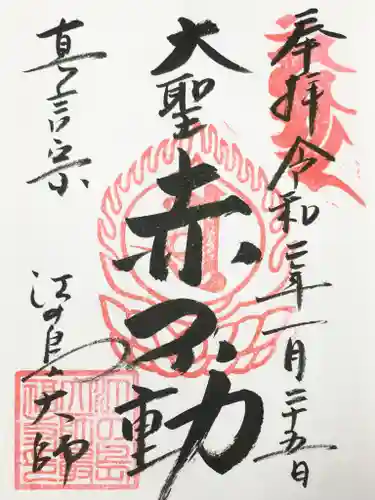 奉拝
令和二年一月二十五日
大聖
赤不動
真言宗
江の島大師